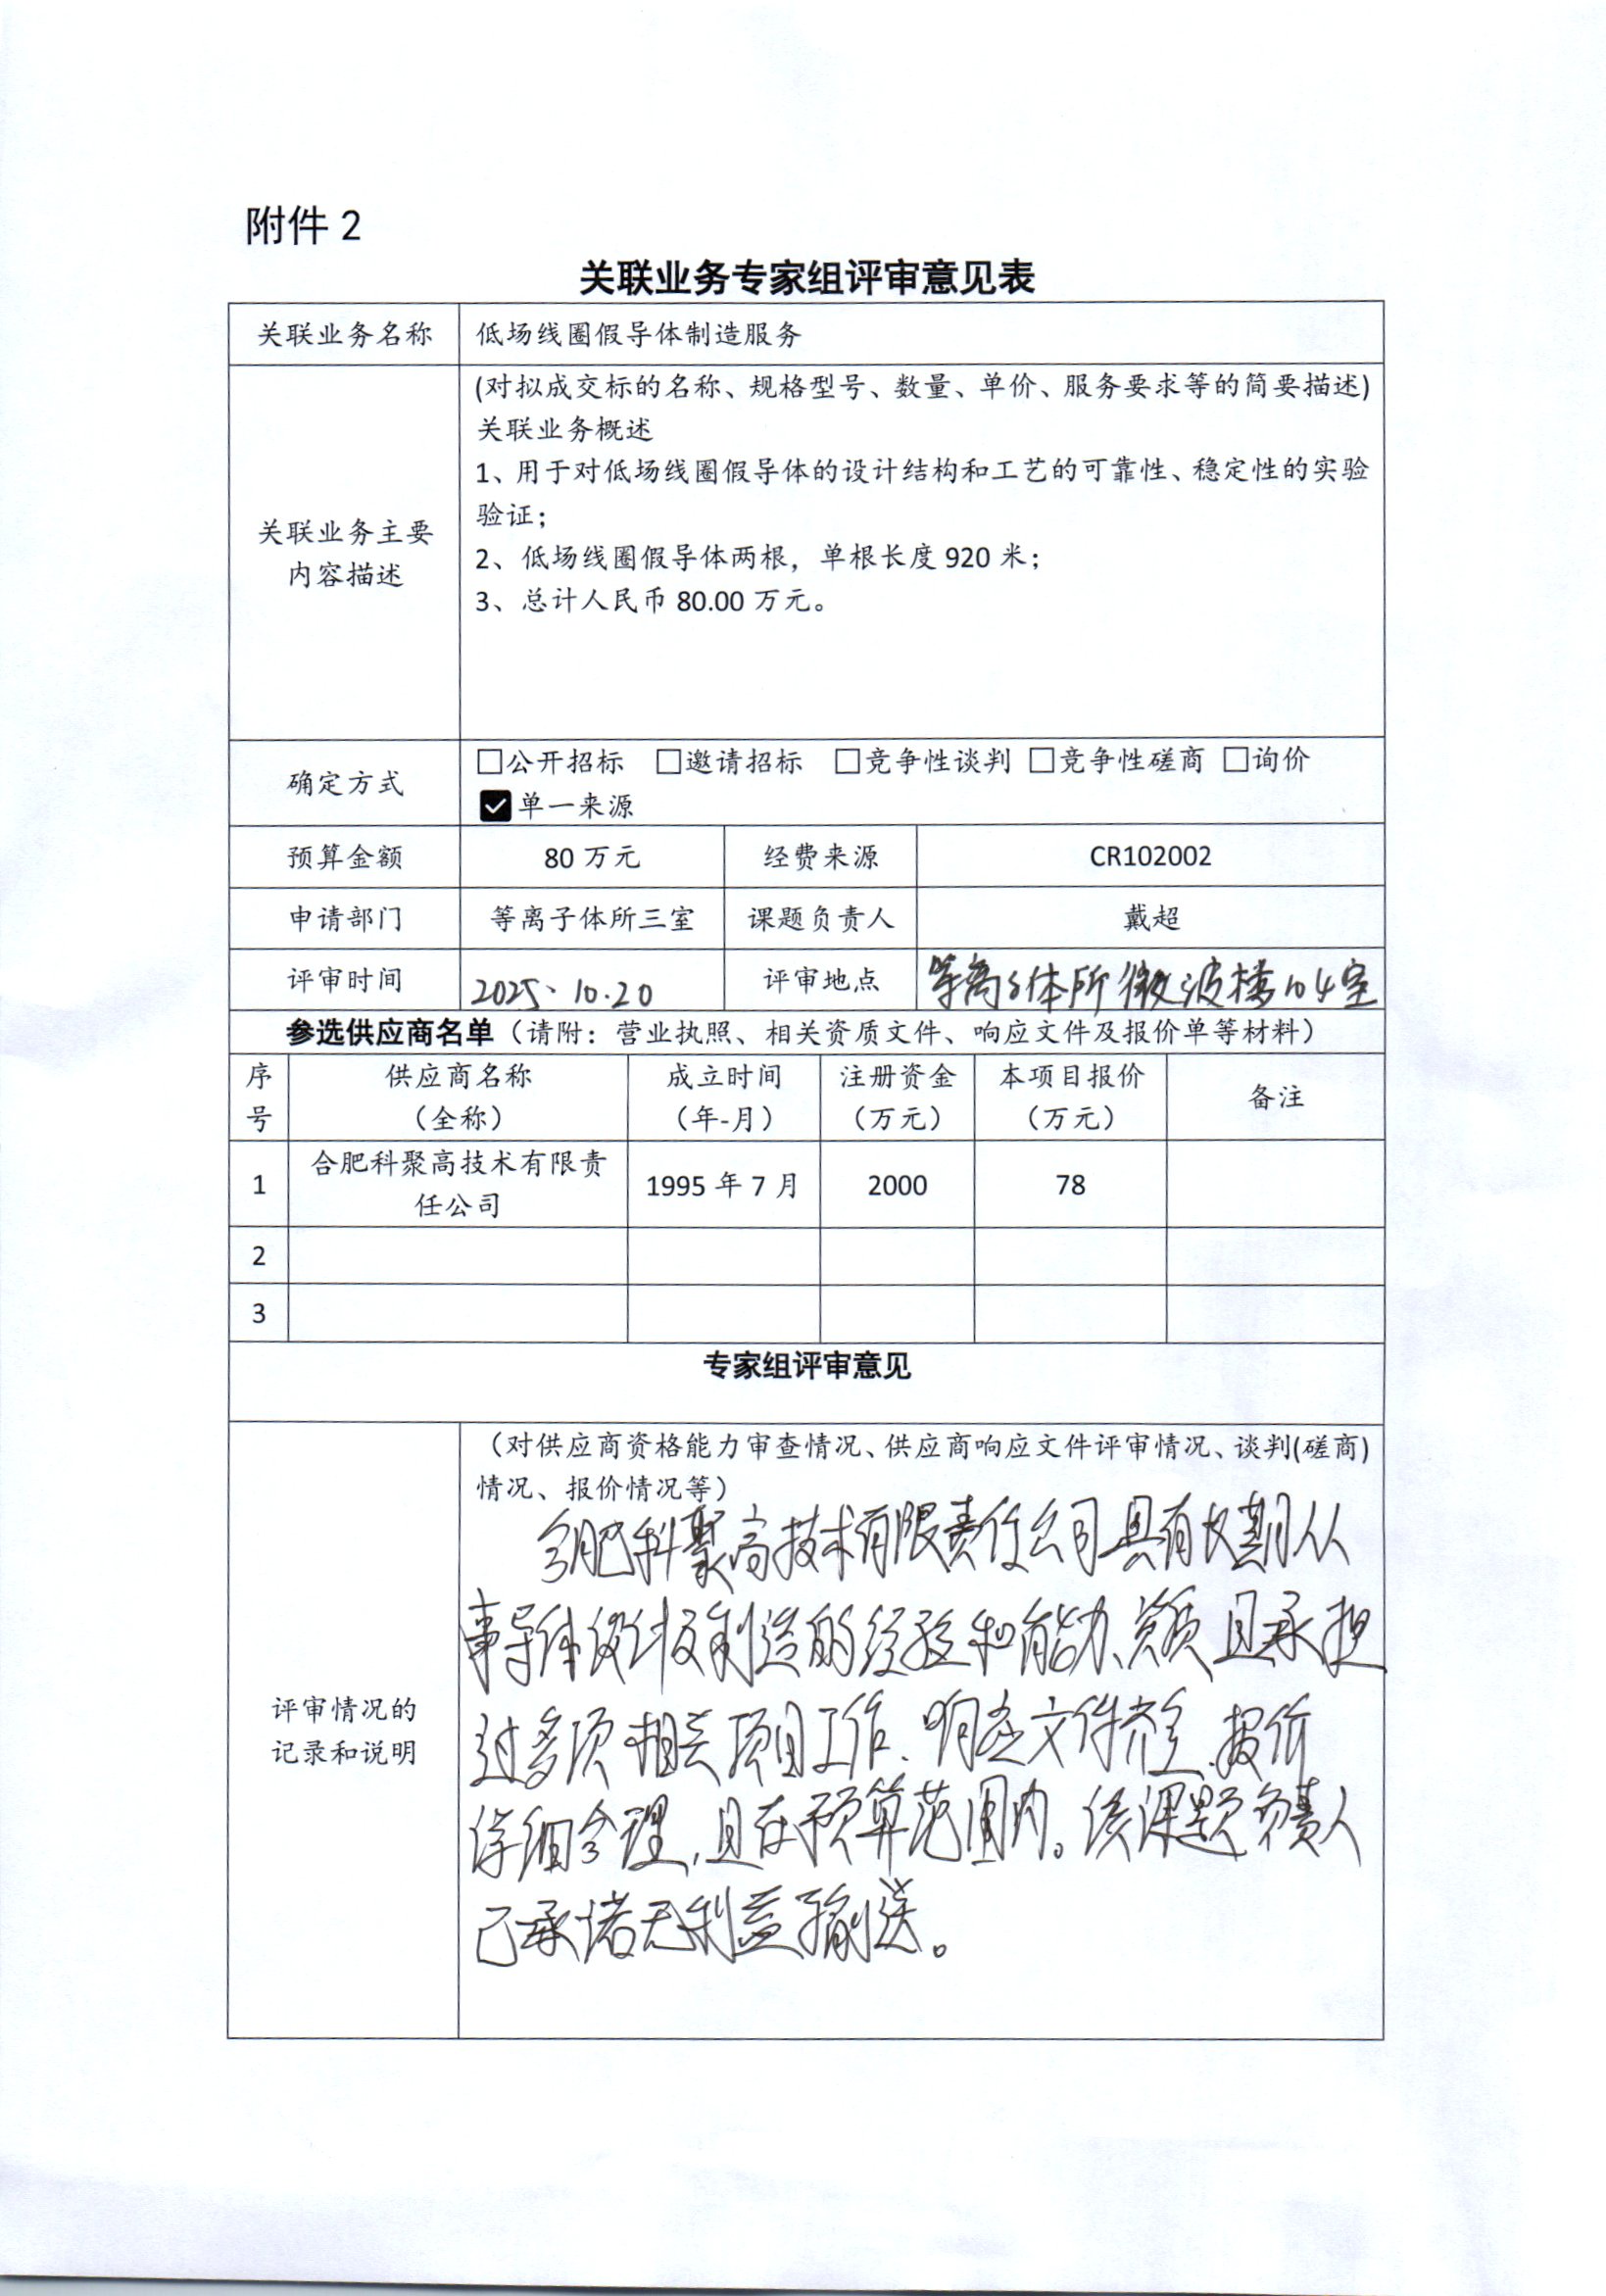 附件 2
关联业务专家组评审意见表
关联业务名称 低场线圈假导体制造服务
(对拟成交标的名称、规格型号、数量、单价、服务要求等的简要描述)
关联业务概述
1、用于对低场线圈假导体的设计结构和工艺的可靠性、稳定性的实验
验证；
关联业务主要
内容描述
2、低场线圈假导体两根，单根长度 920 米；
3、总计人民币 80.00 万元。
确定方式
☐公开招标 ☐邀请招标 ☐竞争性谈判 ☐竞争性磋商 ☐询价
☑单一来源
预算金额 80 万元 经费来源 CR102002
申请部门 等离子体所三室 课题负责人 戴超
评审时间 2025、10.20 评审地点 等离子体所微波楼104室
参选供应商名单（请附：营业执照、相关资质文件、响应文件及报价单等材料）
序号 供应商名称（全称） 成立时间（年-月） 注册资金（万元） 本项目报价（万元） 备注
1 合肥科聚高技术有限责任公司 1995 年 7 月 2000 78
2
3
专家组评审意见
评审情况的
记录和说明
（对供应商资格能力审查情况、供应商响应文件评审情况、谈判(磋商)
情况、报价情况等）
合肥科聚高技术有限责任公司具有长期从
事导体设计及制造的经验和能力、资质，且承担
过多项相关项目工作、响应文件齐全，报价
详细合理，且在预算范围内。该课题负责人
已承诺无利益输送。